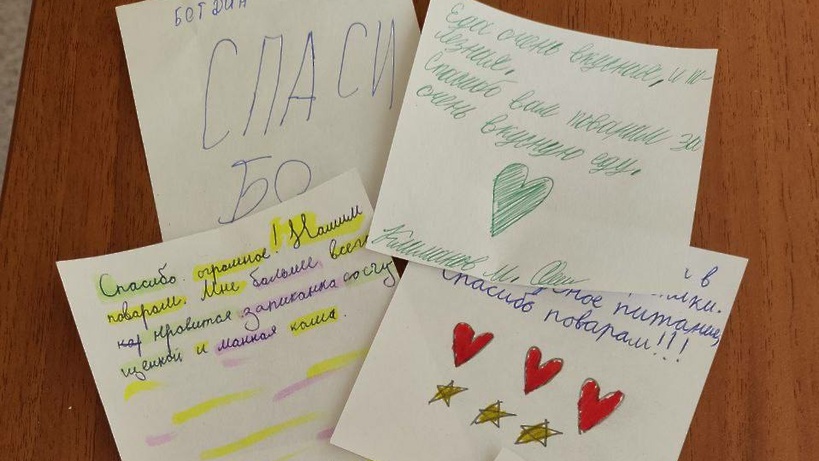 СПАСИ
БО
Еда очень вкусная, и по-
лезная.
Спасибо вам поварам за
очень вкусную еду.
Спасибо огромное! Нашим
поварам. Мне больше всего
нравится запиканка со сгу
щенкой и манная каша.
в
питание,
Спасибо поварам!!!